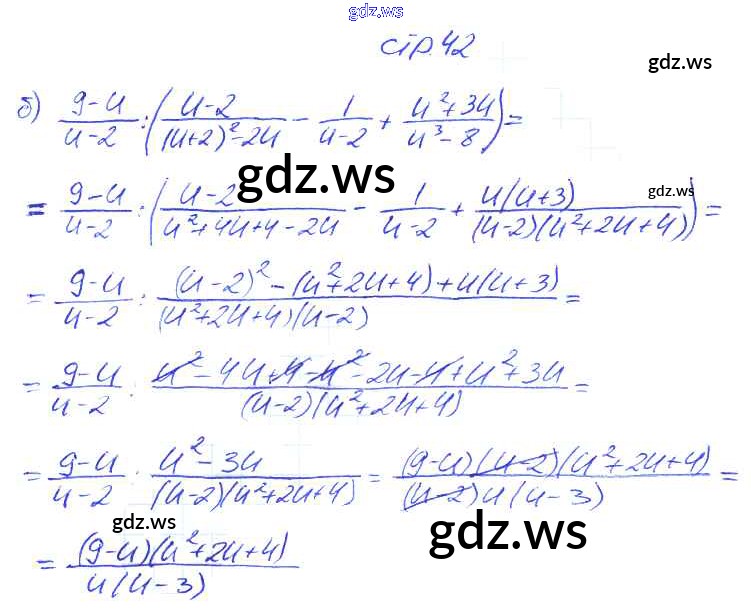 gdz.ws
стр. 42
gdz.ws
б) \frac{9-u}{u-2} : \left( \frac{u-2}{(u+2)^2-2u} - \frac{1}{u-2} + \frac{u^2+3u}{u^3-8} \right) =
gdz.ws
= \frac{9-u}{u-2} : \left( \frac{u-2}{u^2+4u+4-2u} - \frac{1}{u-2} + \frac{u(u+3)}{(u-2)(u^2+2u+4)} \right) =
gdz.ws
= \frac{9-u}{u-2} : \frac{(u-2)^2-(u^2+2u+4)+u(u+3)}{(u^2+2u+4)(u-2)} =
= \frac{9-u}{u-2} : \frac{u^2-4u+4-u^2-2u-4+u^2+3u}{(u-2)(u^2+2u+4)} =
= \frac{9-u}{u-2} : \frac{u^2-3u}{(u-2)(u^2+2u+4)} = \frac{(9-u)(u-2)(u^2+2u+4)}{(u-2)u(u-3)} =
gdz.ws
gdz.ws
= \frac{(9-u)(u^2+2u+4)}{u(u-3)}
gdz.ws